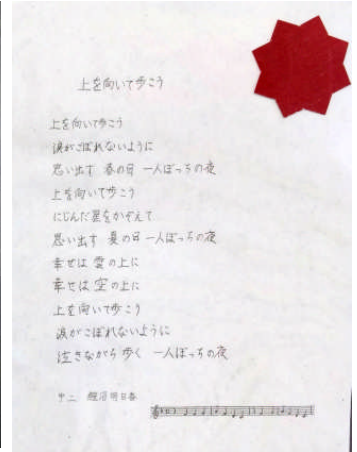 上を向いて歩こう
上を向いて歩こう
涙がこぼれないように
思い出す 春の日 一人ぼっちの夜
上を向いて歩こう
にじんだ星をかぞえて
思い出す 夏の日 一人ぼっちの夜
幸せは 雲の上に
幸せは 空の上に
上を向いて歩こう
涙がこぼれないように
泣きながら 歩く 一人ぼっちの夜
中二 鯉沼明日香